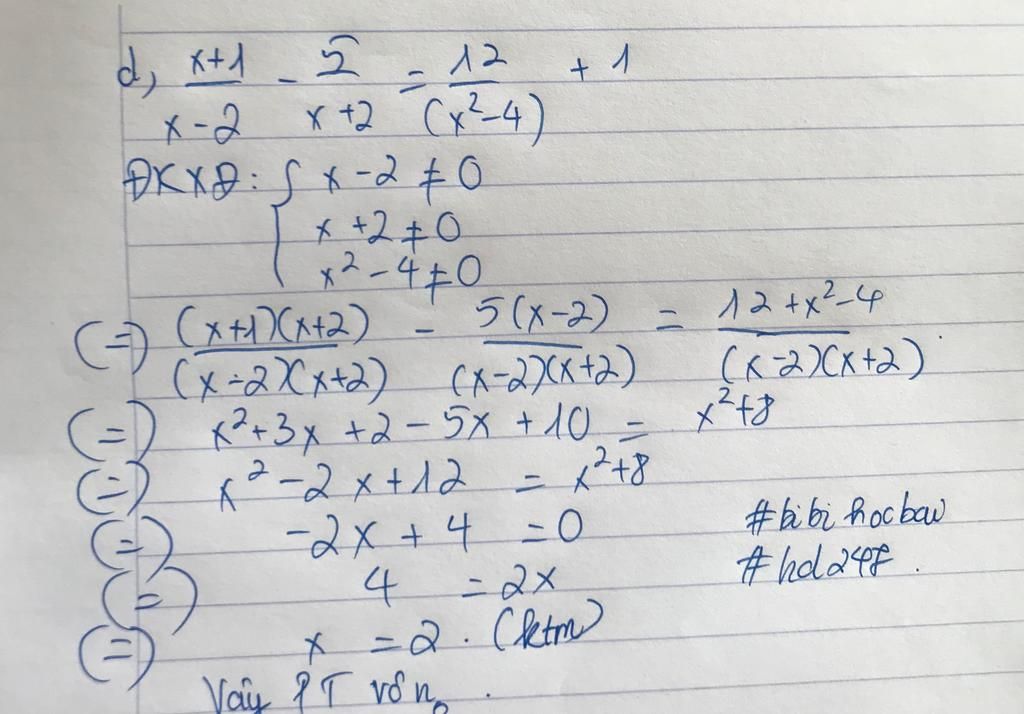 d, x+1/x-2 - 5/x+2 = 12/(x²-4) + 1
ĐKXĐ: { x-2 ≠ 0
x+2 ≠ 0
x²-4 ≠ 0
(=) (x+1)(x+2)/(x-2)(x+2) - 5(x-2)/(x-2)(x+2) = 12+x²-4/(x-2)(x+2)
(=) x²+3x+2-5x+10 = x²+8
(=) x²-2x+12 = x²+8
(=) -2x+4 = 0
(=) 4 = 2x
(=) x = 2. (ktm)
Vậy PT vô n₀.
#bibi hocbai
#hd247.